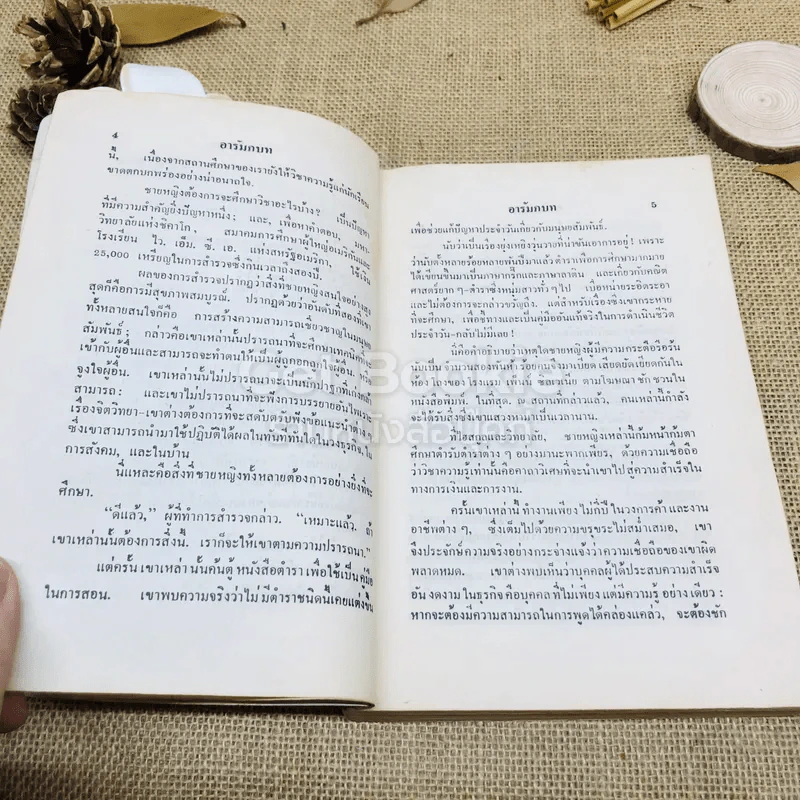 4
อารัมภบท
นี้, เนื่องจากสถานศึกษาของเรายังให้วิชาความรู้แก่นักเรียน
ขาดตกบกพร่องอย่างน่าอนาถใจ.
ชายหญิงต้องการจะศึกษาวิชาอะไรบ้าง? เป็นปัญหา
ที่มีความสำคัญยิ่งปัญหาหนึ่ง; และ, เพื่อหาคำตอบ, มหา-
วิทยาลัยแห่งชิคาโก, สมาคมการศึกษาผู้ใหญ่อเมริกันและ
โรงเรียน ไว. เอ็ม. ซี. เอ. แห่งสหรัฐอเมริกา, ใช้เงิน
25,000 เหรียญในการสำรวจซึ่งกินเวลาถึงสองปี.
ผลของการสำรวจปรากฏว่าสิ่งที่ชายหญิงสนใจอย่างสูง
สุดก็คือการมีสุขภาพสมบูรณ์. ปรากฏด้วยว่าอันดับที่สองที่เขา
ทั้งหลายสนใจก็คือ การสร้างความสามารถเชี่ยวชาญในมนุษย
สัมพันธ์; กล่าวคือเขาเหล่านั้นปรารถนาจะศึกษาเทคนิคการ
เข้ากับผู้อื่นและสามารถจะทำตนให้เป็นผู้ถูกอกถูกใจผู้อื่น,
จูงใจผู้อื่น. เขาเหล่านั้นไม่ปรารถนาจะเป็นนักปาฐกที่เก่งกล้า
สามารถ; และเขาไม่ปรารถนาที่จะฟังการบรรยายอันไพเราะ
เรื่องจิตวิทยา-เขาต่างต้องการที่จะสดับตรับฟังข้อแนะนำต่างๆ
ซึ่งเขาสามารถนำมาใช้ปฏิบัติได้ผลในทันทีทันใดในวงธุรกิจ,
การสังคม, และในบ้าน
นี่แหละคือสิ่งที่ชายหญิงทั้งหลายต้องการอย่างยิ่งที่จะ
ศึกษา.
“ดีแล้ว,” ผู้ที่ทำการสำรวจกล่าว. “เหมาะแล้ว. ถ้า
เขาเหล่านั้นต้องการสิ่งนี้. เราก็จะให้เขาตามความปรารถนา.”
แต่ครั้นเขาเหล่านั้นค้นดูหนังสือตำราเพื่อใช้เป็นคู่มือ
ในการสอน. เขาพบความจริงว่าไม่มีตำราชนิดนี้เคยแต่งขึ้น
อารัมภบท
5
เพื่อช่วยแก้ปัญหาประจำวันเกี่ยวกับมนุษยสัมพันธ์.
นับว่าเป็นเรื่องยุ่งเหยิงวุ่นวายที่น่าขันเอาการอยู่! เพราะ
ว่านับตั้งหลายร้อยหลายพันปีมาแล้ว ตำราเพื่อการศึกษามากมาย
ได้เขียนขึ้นมาเป็นภาษากรีกและภาษาลาติน และเกี่ยวกับคณิต
ศาสตร์ยาก ๆ-ตำราซึ่งหนุ่มสาวทั่ว ๆ ไป เบื่อหน่ายระอิดระอา
และไม่ต้องการจะกล่าวขวัญถึง. แต่สำหรับเรื่องซึ่งเขากระหาย
ที่จะศึกษา, เพื่อชี้ทางและเป็นคู่มืออันแท้จริงในการดำเนินชีวิต
ประจำวัน-กลับไม่มีเลย!
นี่คือคำอธิบายว่าเหตุใดชายหญิงผู้มีความกระตือรือร้น
นับเป็นจำนวนสองพันห้าร้อยคนจึงมาเบียดเสียดยัดเยียดกันใน
ห้องโถงของโรงแรม เพ็นน์ซิลเวเนีย ตามโฆษณาชักชวนใน
หนังสือพิมพ์. ในที่สุด. ณ สถานที่กล่าวแล้ว, คนเหล่านี้กำลัง
จะได้รับสิ่งซึ่งเขาแสวงหามาเป็นเวลานาน.
ที่ไฮสกูลและวิทยาลัย, ชายหญิงเหล่านี้ก้มหน้าก้มตา
ศึกษาตำรับตำราต่าง ๆ อย่างมานะพากเพียร, ด้วยความเชื่อถือ
ว่าวิชาความรู้เท่านั้นคือคาถาวิเศษที่จะนำเขาไปสู่ความสำเร็จใน
ทางการเงินและการงาน.
ครั้นเขาเหล่านี้ทำงานเพียงไม่กี่ปีในวงการค้า และงาน
อาชีพต่าง ๆ, ซึ่งเต็มไปด้วยความขรุขระไม่สม่ำเสมอ, เขา
จึงประจักษ์ความจริงอย่างกระจ่างแจ้งว่าความเชื่อถือของเขาผิด
พลาดหมด. เขาต่างพบเห็นว่าบุคคลผู้ได้ประสบความสำเร็จ
อันงดงามในธุรกิจคือบุคคลที่ไม่เพียงแต่มีความรู้อย่างเดียว:
หากจะต้องมีความสามารถในการพูดได้คล่องแคล่ว, จะต้องชัก